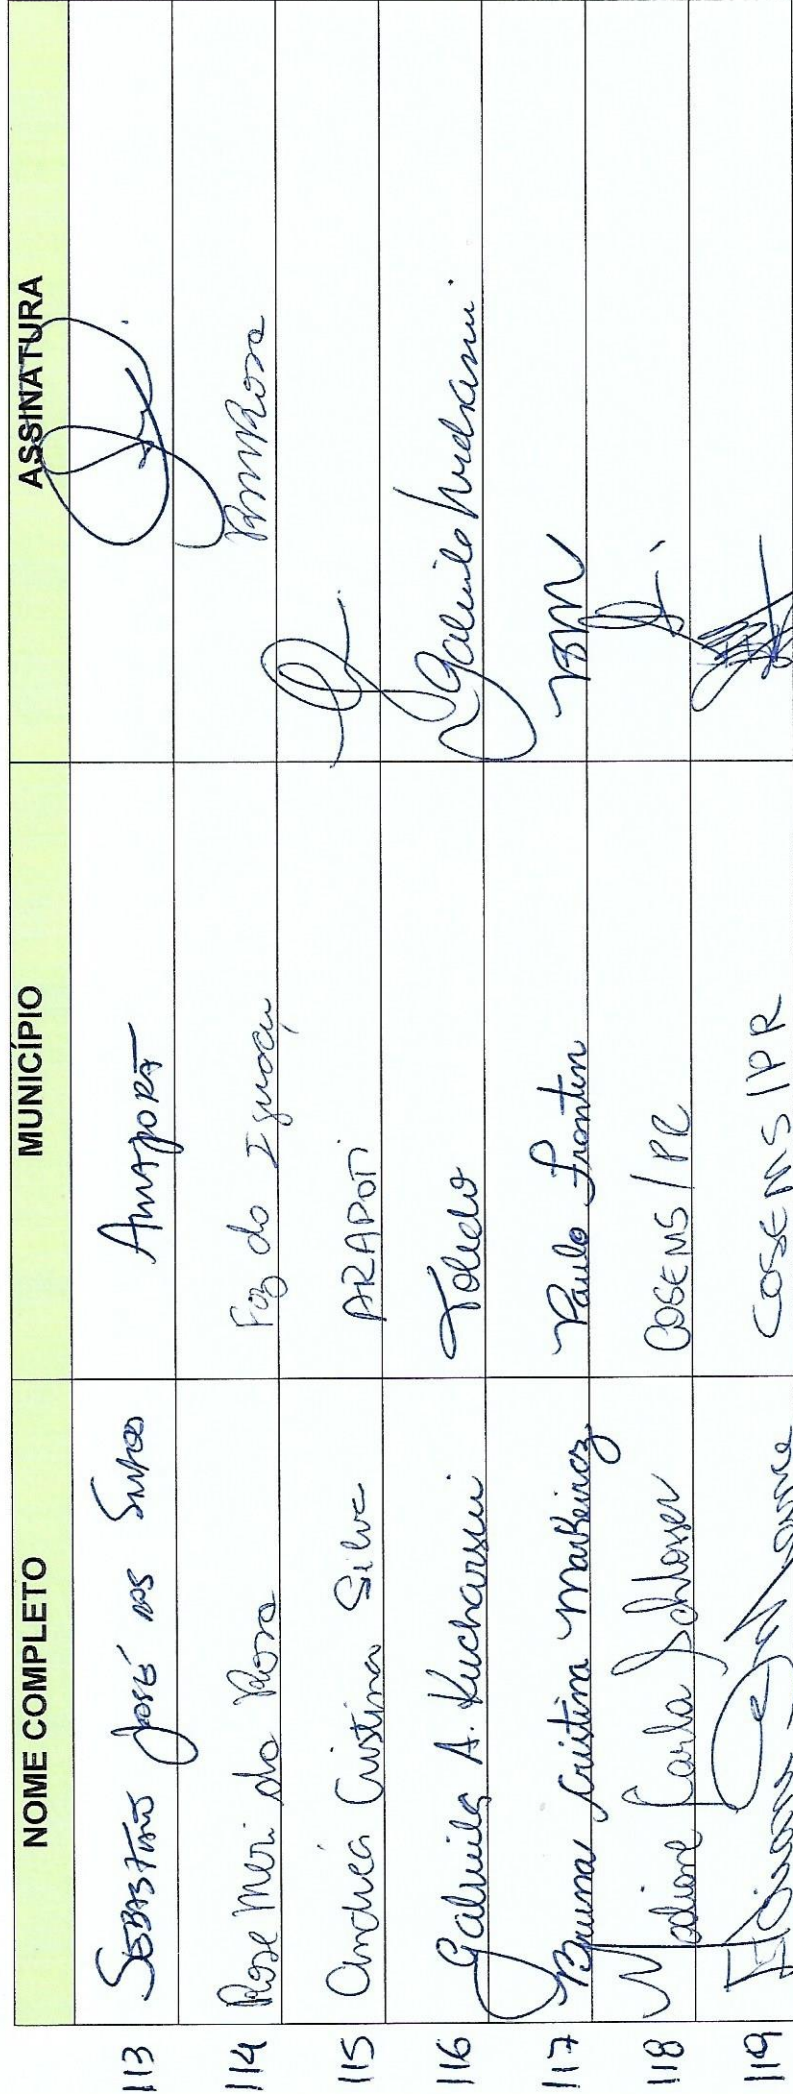 NOME COMPLETO MUNICÍPIO ASSINATURA
113 SEBASTIÃO JOSÉ DOS SANTOS AMAPORÃ
114 Rose Meri da Rosa Foz do Iguaçu RMRosa
115 Andréa Cristina Silva ARAPOTI
116 Gabriela A. Kucharski Toledo Gabriela Kucharski
117 Bruna Cristina Markeiviez Paulo Frontin BM
118 Carla Schlosser COSEMS/PR
119 COSEMS/PR